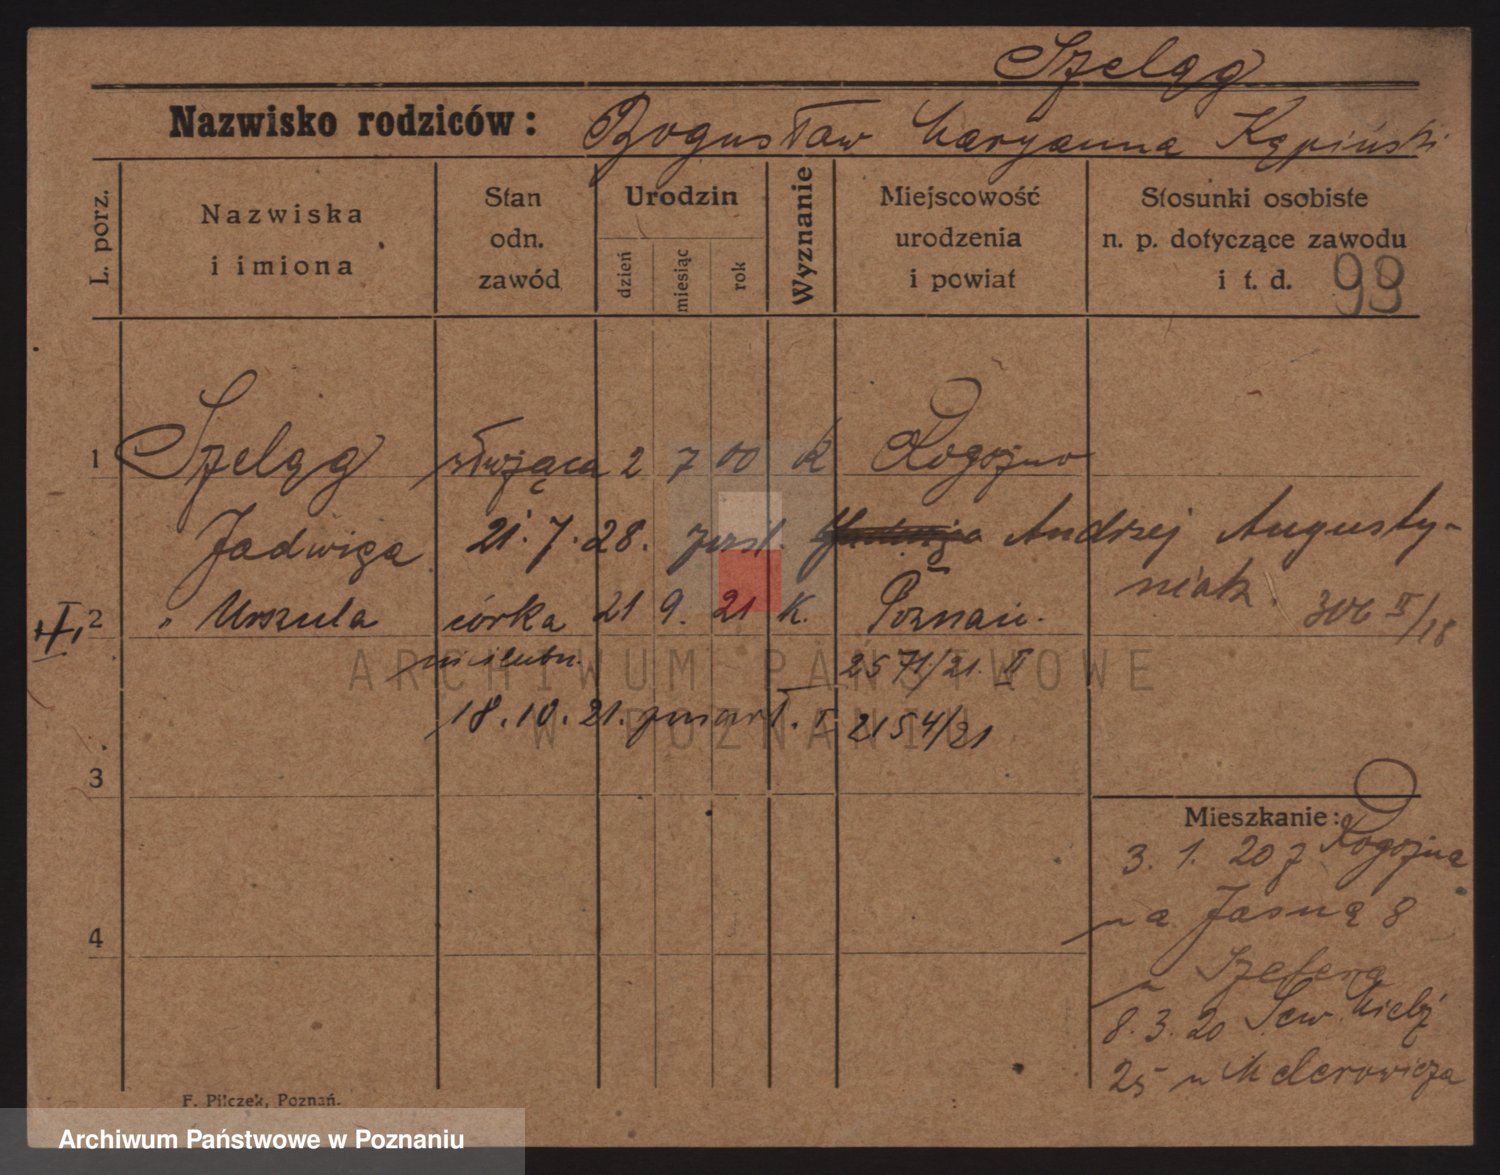 Szeląg
Nazwisko rodziców: Bogusław Maryanna Kąpiński
L. porz.
Nazwiska i imiona
Stan odn. zawód
Urodzin
dzień
miesiąc
rok
Wyznanie
Miejscowość urodzenia i powiat
Stosunki osobiste n. p. dotyczące zawodu i t. d.
99
1 Szeląg służąca 2 7 00 K Rogoźno
Jadwiga 21.7.28. Andrzej Augusty-
niak. 306 II/18
II 2 " Urszula córka 21 9. 21 K. Poznań.
nieślubn. 2571/21. II
18.10.21. zmarł. 2154/21
3
4
Mieszkanie:
3. 1. 20 z Rogoźna
na Jasną 8
u Szefera
8. 3. 20 Sew. Mielż
25 u
F. Pilczek, Poznań.
ARCHIWUM PAŃSTWOWE
W POZNANIU
Archiwum Państwowe w Poznaniu